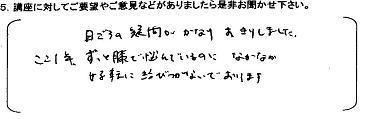 5. 講座に対してご要望やご意見などがありましたら是非お聞かせ下さい。
日ごろの疑問が かなり あきりました。
ここ1年 ずっと膝で悩んでいるのに なかなか
好転に結びつかないでおります